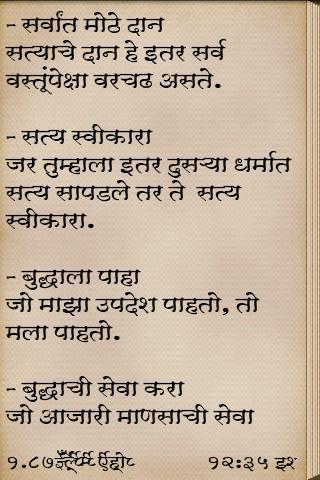 - सर्वांत मोठे दान
सत्याचे दान हे इतर सर्व
वस्तूंपेक्षा वरचढ असते.
- सत्य स्वीकारा
जर तुम्हाला इतर दुसऱ्या धर्मात
सत्य सापडले तर ते सत्य
स्वीकारा.
- बुद्धाला पाहा
जो माझा उपदेश पाहतो, तो
मला पाहतो.
- बुद्धाची सेवा करा
जो आजारी माणसाची सेवा
१.८७
१२:३५ इश